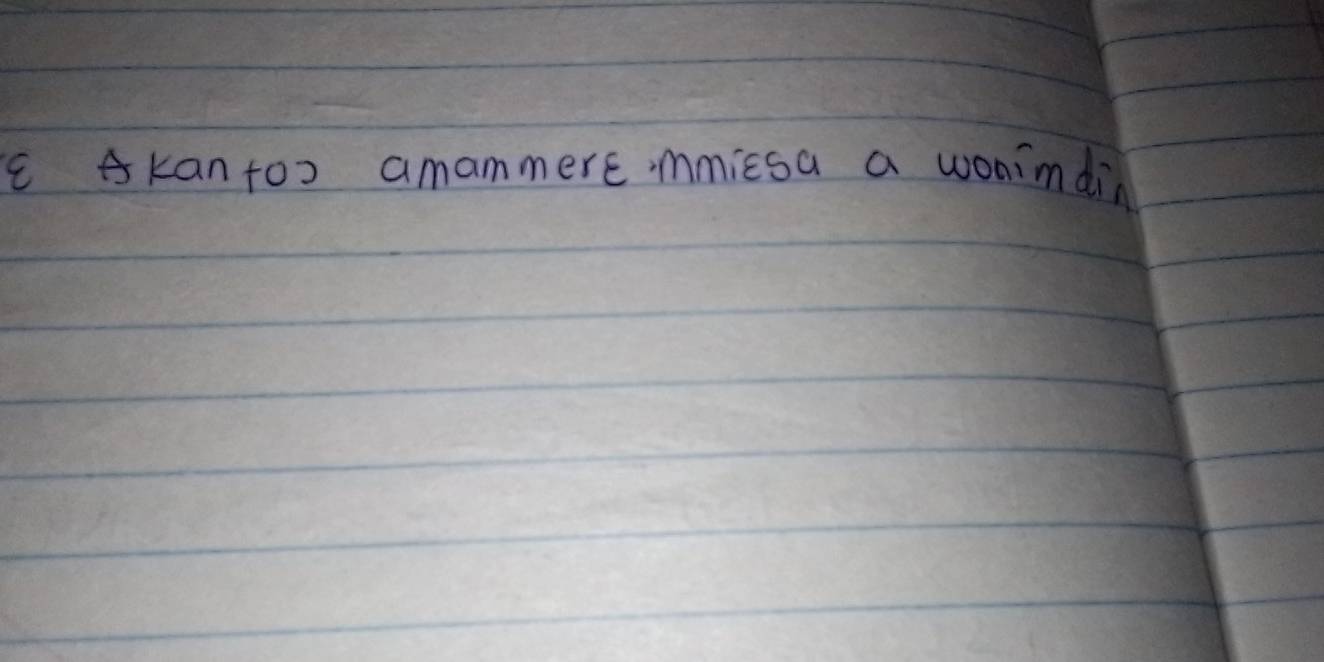 ɛ Akanfoɔ amammerɛ mmiɛsa a wonim din